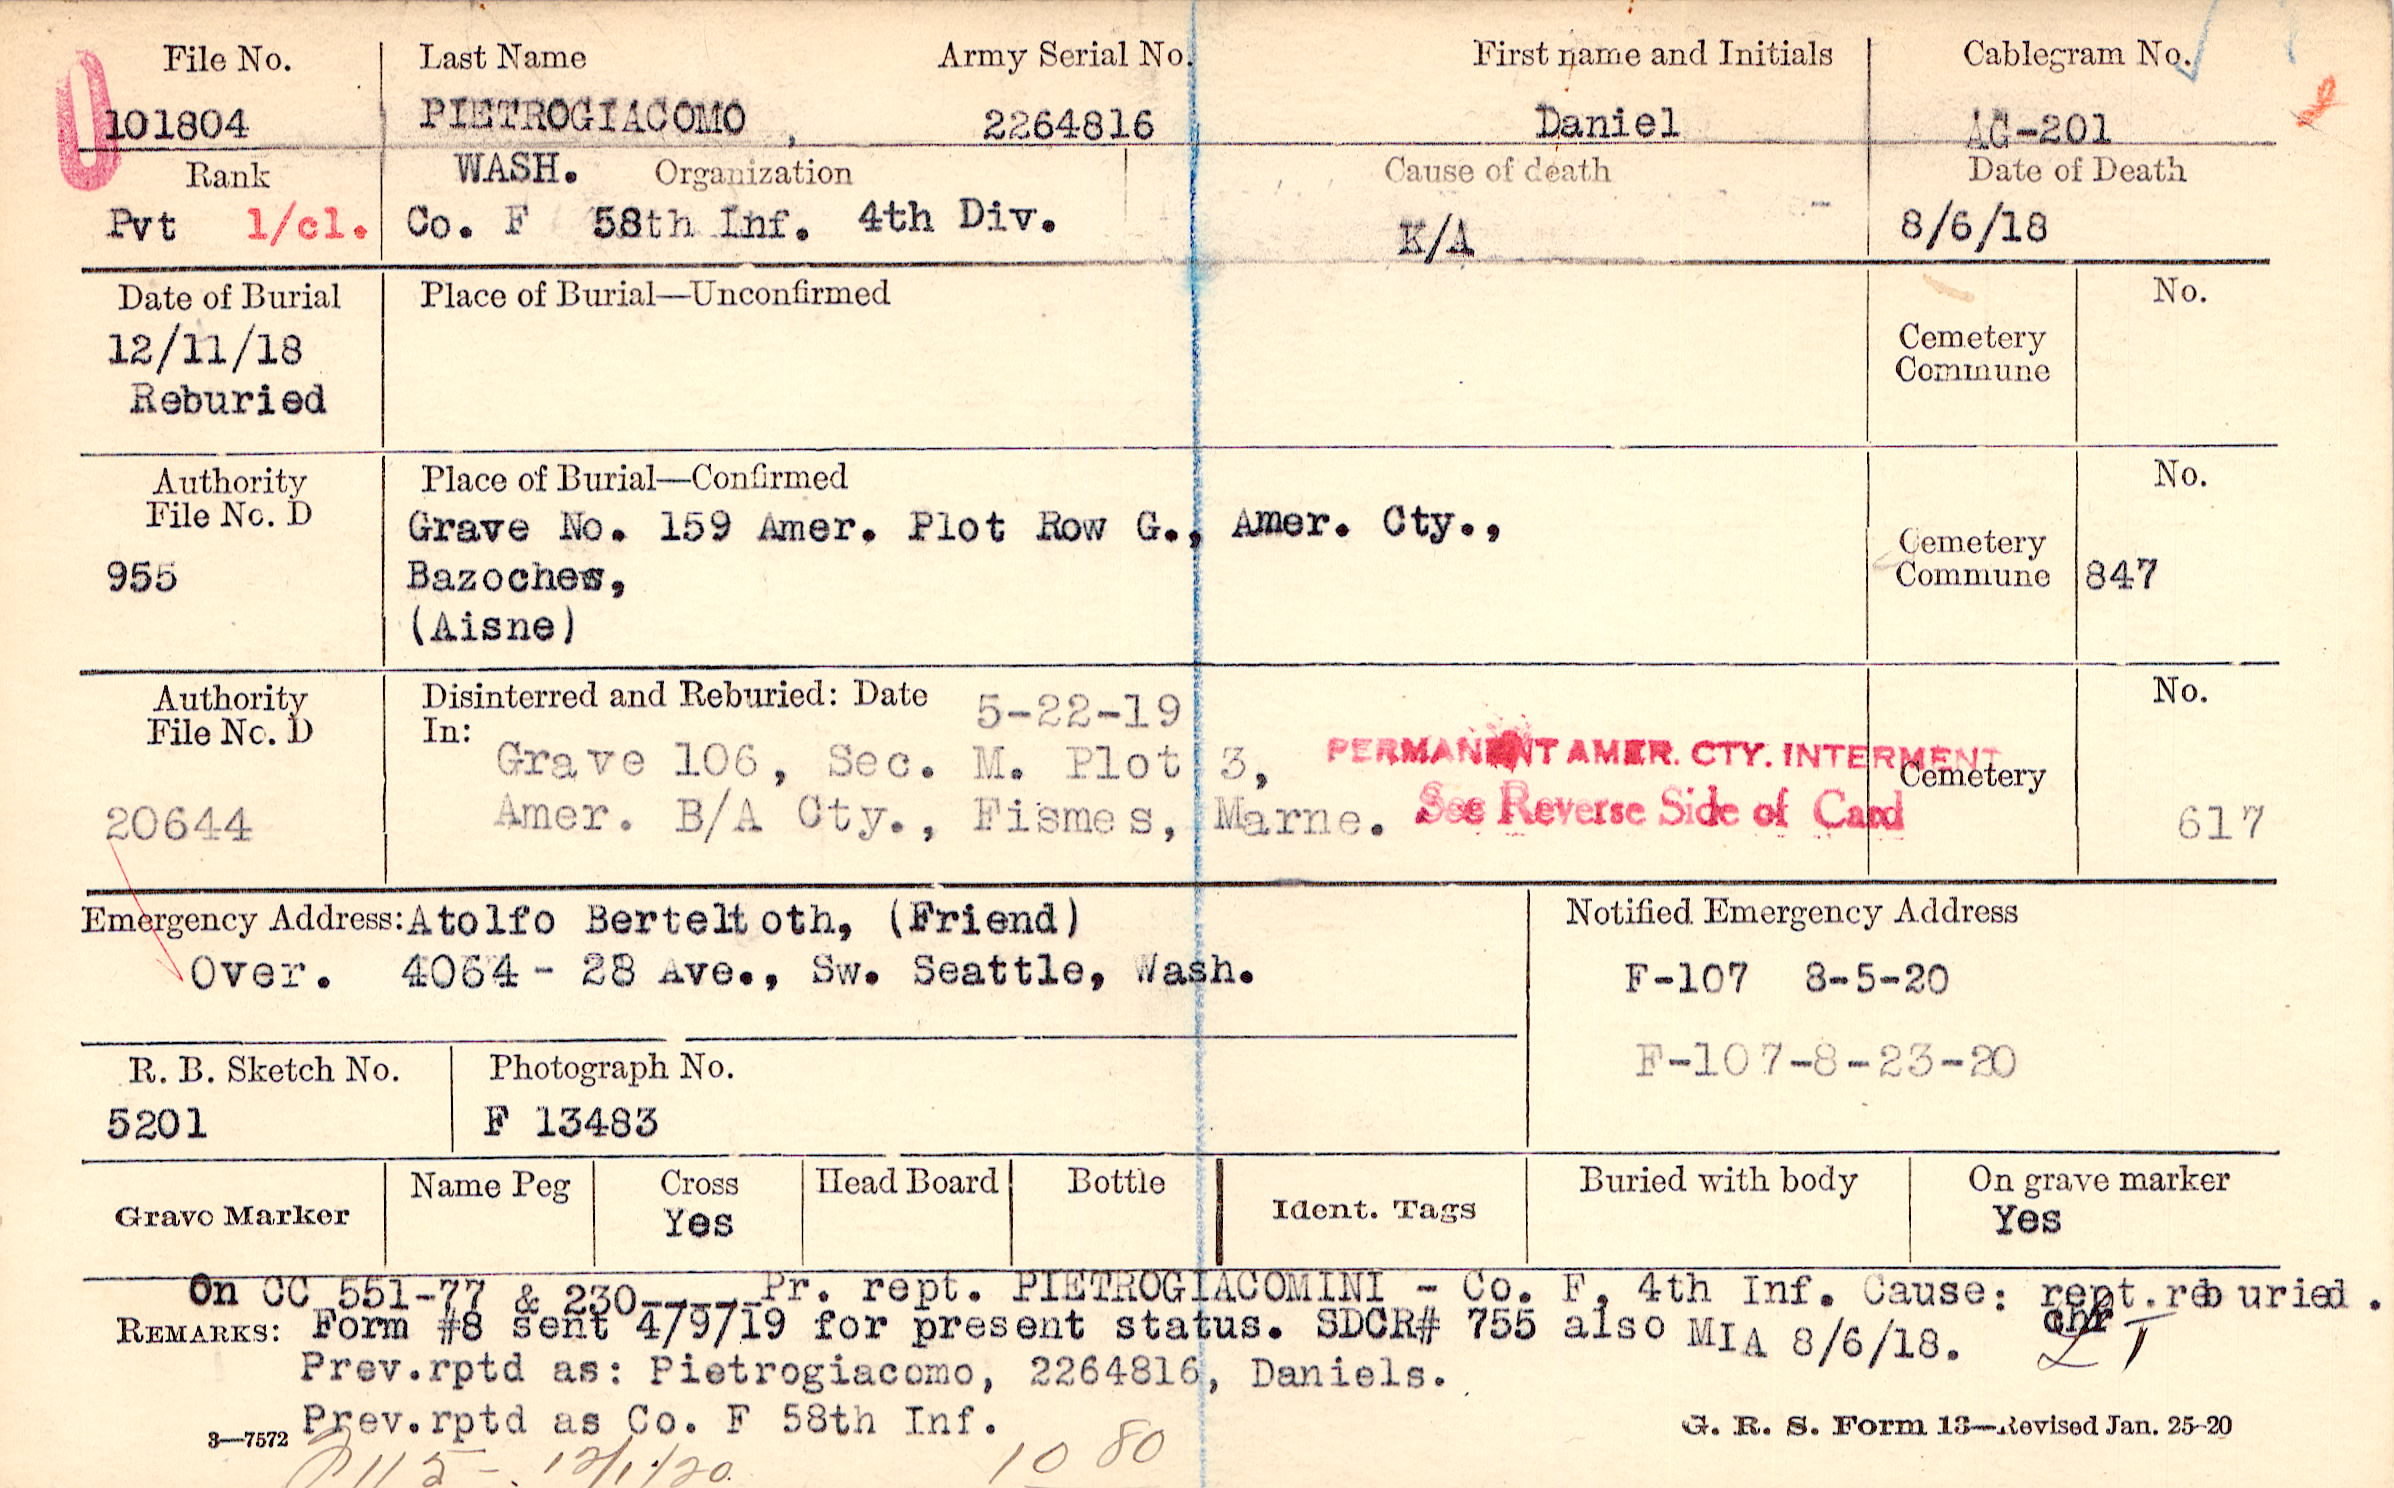 File No. Last Name Army Serial No. First name and Initials Cablegram No.
101804 PIETROGIACOMO , 2264816 Daniel AG-201
Rank WASH. Organization Cause of death Date of Death
Pvt 1/cl. Co. F 58th Inf. 4th Div. K/A 8/6/18
Date of Burial Place of Burial—Unconfirmed No.
12/11/18 Cemetery
Reburied Commune
Authority Place of Burial—Confirmed No.
File No. D
Grave No. 159 Amer. Plot Row G., Amer. Cty.,
Cemetery
955 Bazoches, Commune 847
(Aisne)
Authority Disinterred and Reburied: Date 5-22-19 No.
File No. D In:
Grave 106, Sec. M. Plot 3, PERMANENT AMER. CTY. INTERMENT
Cemetery
20644 Amer. B/A Cty., Fismes, Marne. See Reverse Side of Card 617
Emergency Address: Atolfo Berteltoth, (Friend) Notified Emergency Address
Over. 4064 - 28 Ave., Sw. Seattle, Wash. F-107 8-5-20
F-107-8-23-20
R. B. Sketch No. Photograph No.
5201 F 13483
Name Peg Cross Head Board Bottle Buried with body On grave marker
Grave Marker Yes Ident. Tags Yes
On CC 551-77 & 230------Pr. rept. PIETROGIACOMINI - Co. F, 4th Inf. Cause: rept. reburied.
REMARKS: Form #8 sent 4/9/19 for present status. SDCR# 755 also MIA 8/6/18. chr
Prev.rptd as: Pietrogiacomo, 2264816, Daniels.
Prev.rptd as Co. F 58th Inf.
3—7572 G. R. S. Form 13—Revised Jan. 25-20
10 80